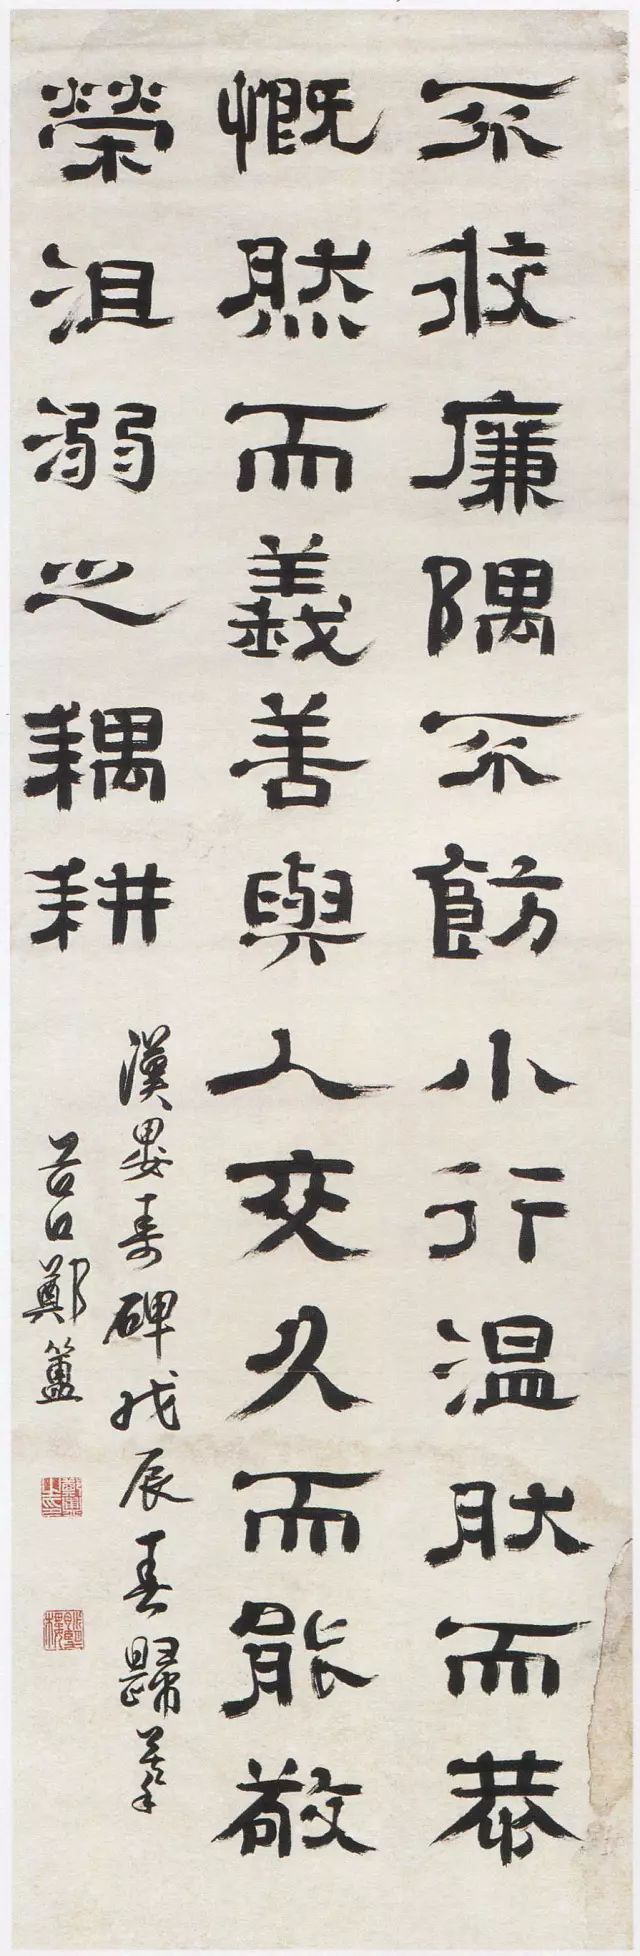 不攸廉隅不飭小行温肰而恭
慨然而義善與人交久而能敬
榮沮溺之耦耕
漢婁壽碑戊辰春歸
谷口鄭簠